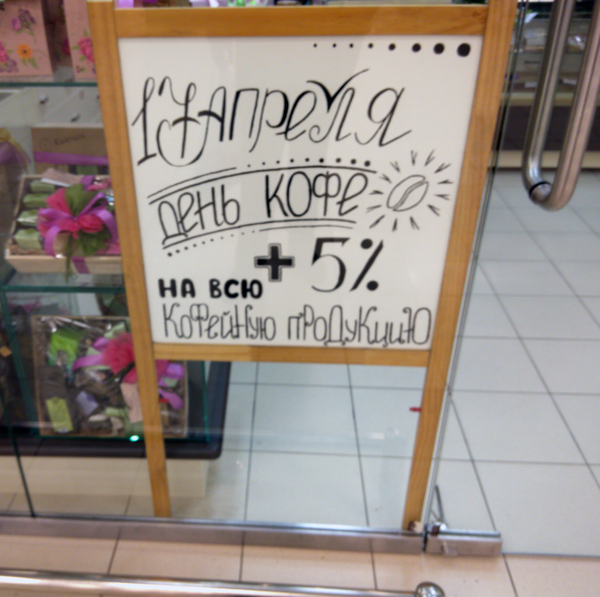 17 апреля
день кофе
+ 5%
на всю
кофейную продукцию